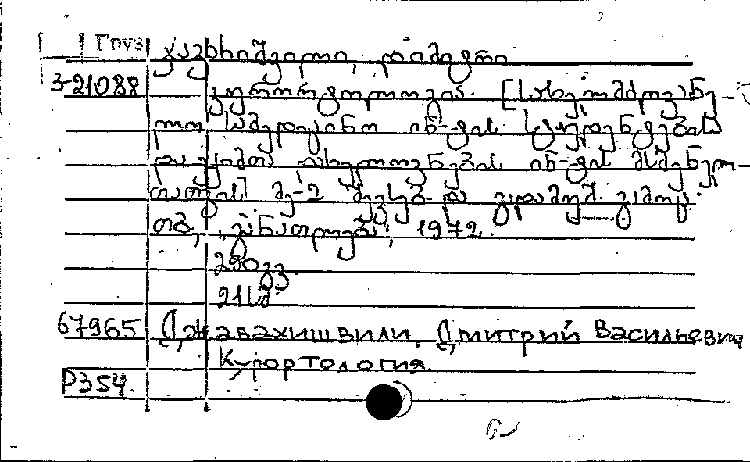 Груз ჯავახიშვილი, დიმიტრი
3-21088 კურორტოლოგია. [სახელმძღვანე-
ლო სამედიცინო ინ-ტის სტუდენტების
და ექიმთა დახელოვნების ინ-ტის მსმენელ-
თათვის] მე-2 შევსებ. და გადამუშ. გამოც.
თბ., „განათლება", 1972.
290 გვ.
21 სმ
67965 Джавахишвили, Дмитрий Васильевич
Курортология.
Р354.